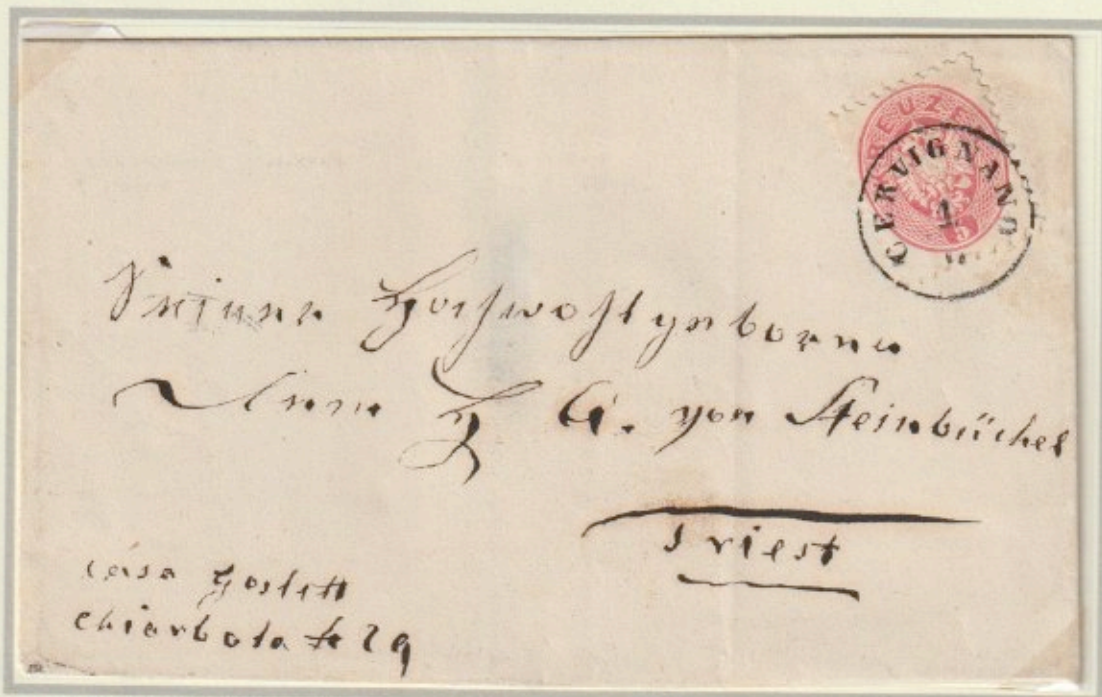 KREUZER
5
CERVIGNANO
1
Seiner Hochwohlgeboren
Herrn H von Steinbüchel
Triest
casa Goslett
Chiarbola 29